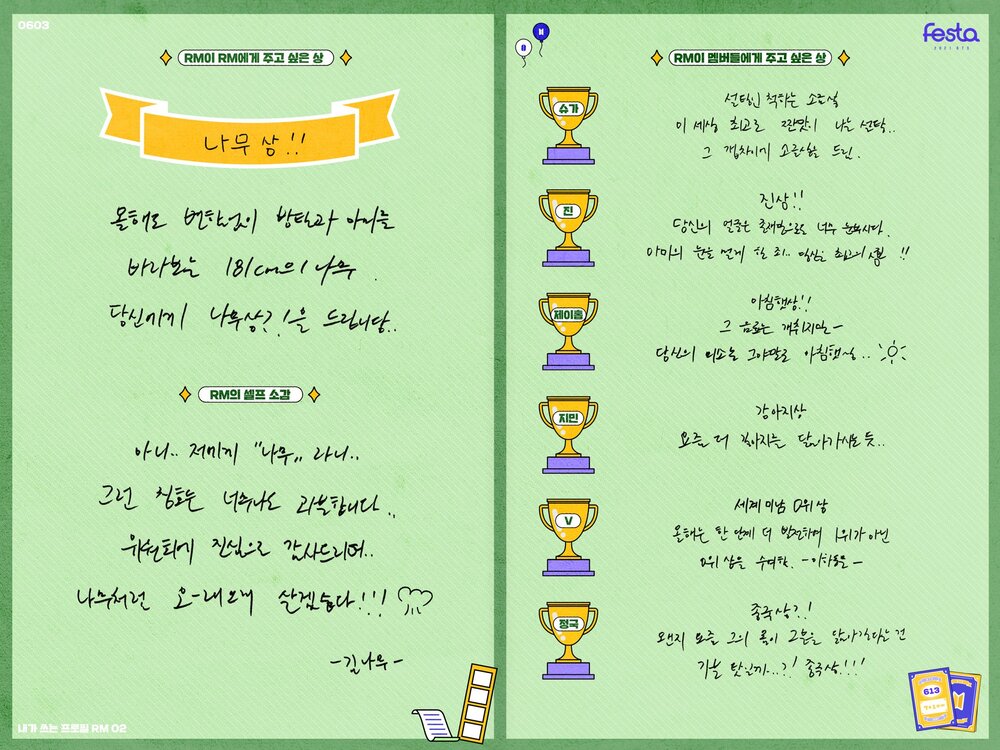 0603
RM이 RM에게 주고 싶은 상
나무상!!
올해도 변함없이 방탄과 아미를
바라보는 181cm의 나무.
당신에게 나무상?!을 드립니당..
RM의 셀프 소감
아니.. 저에게 "나무"라니..
그런 칭호는 너무나도 과분합니다..
위원회에 진심으로 감사드리며..
나무처럼 오-래오래 살겠습니다!!!
-김나무-
내가 쓰는 프로필 RM 02
festa
2021 BTS
RM이 멤버들에게 주고 싶은 상
슈가
설탕인 척하는 소금상
이 세상 최고로 짠맛이 나는 설탕..
그 갭차이에 소금상을 드린.
진
진상!!
당신의 얼굴은 존재만으로도 너무 눈부시다.
아미의 눈을 멀게 할 죄.. 당신은 최고의 !!
제이홉
아침햇상!!
그 음료는 개취지만-
당신의 미소는 그야말로 아침햇살..
지민
강아지상
요즘 더 강아지를 닮아가시는 듯..
V
세계미남 0위상
올해는 한 단계 더 발전하여 1위가 아닌
0위 상을 수여함. -이하동문-
정국
종국상?!
왠지 요즘 그의 목이 그분을 닮아간다는 건
기분 탓인가...?! 종국상!!!
613